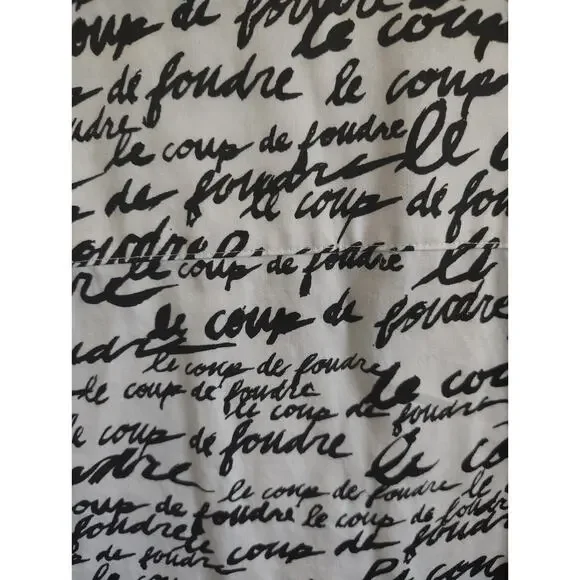 coup de foudre le coup
de foudre le coup
le coup de foudre le
de foudre
le coup de
foudre
le coup de foudre le
le coup de foudre
le coup de foudre
le coup de foudre
le coup de foudre
le coup de foudre le
le coup de foudre le
coup de foudre le coup de foudre
foudre le
de foudre le coup de foudre